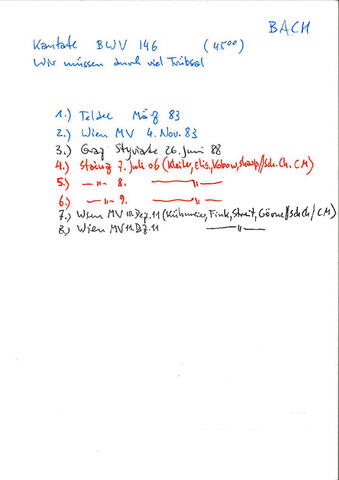 BACH
Kantate BWV 146 (45⁰⁰)
Wir müssen durch viel Trübsal
1.) Teldec März 83
2.) Wien MV 4. Nov. 83
3.) Graz Styriarte 26. Juni 88
4.) Stainz 7. Juli 06 (Kleiter, Elis, Kobow, Sharp//Sch.Ch. CM)
5.) —"— 8. —"—
6.) —"— 9. —"—
7.) Wien MV 10. Dez. 11 (Kühmeier, Fink, Streit, Görne//Sch Ch / CM)
8.) Wien MV 11. Dz. 11 —"—